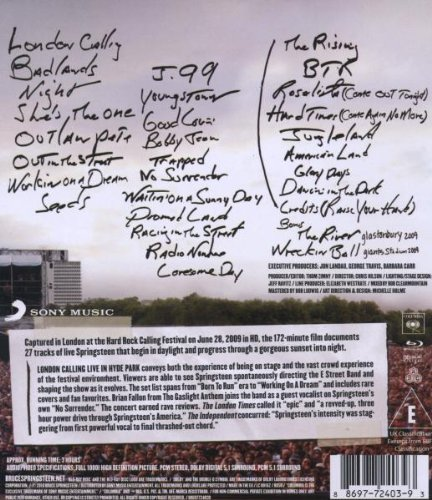 London Calling
Badlands
Night
She's The One
Outlaw Pete
Out in the Street
Workin on a Dream
Seeds
J. 99
Youngstown
Good Lovin'
Bobby Jean
Trapped
No Surrender
Waitin on a Sunny Day
Promised Land
Racing in the Street
Radio Nowhere
Lonesome Day
The Rising
BTR
Rosalita (Come OUT Tonight)
Hard Times (Come Again No More)
Jungleland
American Land
Glory Days
Dancin in the Dark
Credits (Raise Your Hand)
Bonus
The River glastonbury 2009
Wreckin Ball giants stadium 2009
EXECUTIVE PRODUCERS: JON LANDAU, GEORGE TRAVIS, BARBARA CARR
PRODUCER/EDITOR: THOM ZIMNY / DIRECTOR: CHRIS HILSON / LIGHTING/STAGE DESIGN:
JEFF RAVITZ / LINE PRODUCER: ELIZABETH WESTRATE / MIXED BY BOB CLEARMOUNTAIN
MASTERED BY BOB LUDWIG / ART DIRECTION & DESIGN: MICHELLE HOLME
SONY MUSIC
COLUMBIA
Captured in London at the Hard Rock Calling Festival on June 28, 2009 in HD, the 172-minute film documents
27 tracks of live Springsteen that begin in daylight and progress through a gorgeous sunset into night.
LONDON CALLING LIVE IN HYDE PARK conveys both the experience of being on stage and the vast crowd experience
of the festival environment. Viewers are able to see Springsteen spontaneously directing the E Street Band and
shaping the show as it evolves. The set list spans from "Born To Run" era to "Working On A Dream" and includes rare
covers and fan favorites. Brian Fallon from The Gaslight Anthem joins the band as a guest vocalist on Springsteen's
own "No Surrender." The concert earned rave reviews. The London Times called it "epic" and "a revved-up, three
hour power drive through Springsteen's America." The Independent concurred: "Springsteen's intensity was stag-
gering from first powerful vocal to final thrashed-out chord."
E
UK Classification
Exempt from BBFC
Classification
APPROX. RUNNING TIME: 3 HOURS
AUDIO/VIDEO SPECIFICATIONS: FULL 1080I HIGH DEFINITION PICTURE, PCM STEREO, DOLBY DIGITAL 5.1 SURROUND, PCM 5.1 SURROUND
BRUCESPRINGSTEEN.NET
8 86977 24039 3